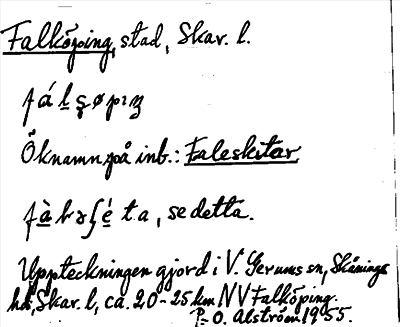 Falköping, stad, Skar. l.
Öknamn på inb.: Faleskitar
, se detta.
Uppteckningen gjord i V. Gerums sn, Skånings
hd, Skar. l, ca. 20-25 km NV Falköping.
P-O. Alström 1955.